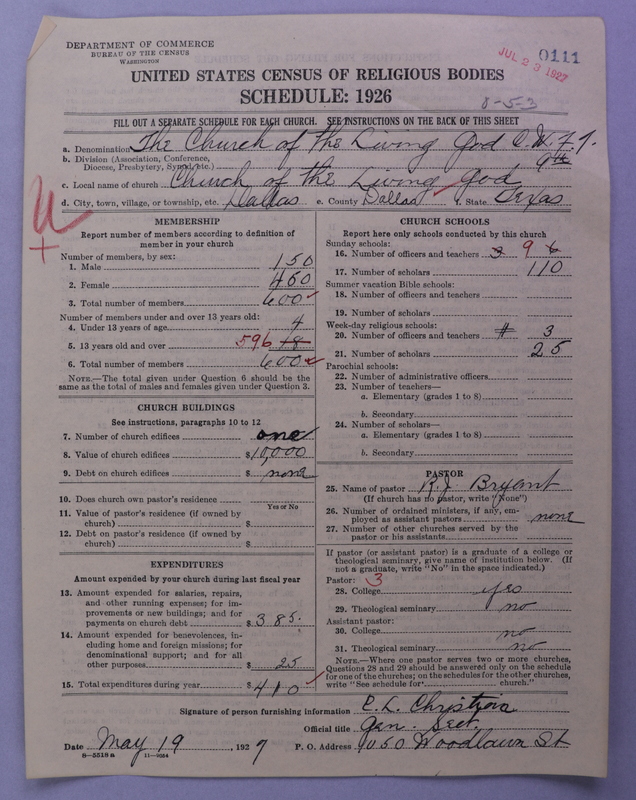 DEPARTMENT OF COMMERCE
BUREAU OF THE CENSUS
WASHINGTON
JUL 23 1927
0111
UNITED STATES CENSUS OF RELIGIOUS BODIES
SCHEDULE: 1926
8-5-3
FILL OUT A SEPARATE SCHEDULE FOR EACH CHURCH. SEE INSTRUCTIONS ON THE BACK OF THIS SHEET
a. Denomination The Church of the Living God C.W.F.F.
b. Division (Association, Conference, Diocese, Presbytery, Synod, etc.) 9th
c. Local name of church Church of the Living God
d. City, town, village, or township, etc. Dallas e. County Dallas f. State Texas
MEMBERSHIP
Report number of members according to definition of
member in your church
Number of members, by sex:
1. Male 150
2. Female 450
3. Total number of members 600
Number of members under and over 13 years old:
4. Under 13 years of age 4
5. 13 years old and over 596 18
6. Total number of members 600
NOTE.—The total given under Question 6 should be
same as the total of males and females given under Question 3.
CHURCH BUILDINGS
See instructions, paragraphs 10 to 12
7. Number of church edifices one
8. Value of church edifices $10,000
9. Debt on church edifices $ none
10. Does church own pastor's residence
Yes or No
11. Value of pastor's residence (if owned by
church) $
12. Debt on pastor's residence (if owned by
church) $
EXPENDITURES
Amount expended by your church during last fiscal year
13. Amount expended for salaries, repairs,
and other running expenses; for im-
provements or new buildings; and for
payments on church debt $385.
14. Amount expended for benevolences, in-
cluding home and foreign missions; for
denominational support; and for all
other purposes $ 25
15. Total expenditures during year $410
CHURCH SCHOOLS
Report here only schools conducted by this church
Sunday schools:
16. Number of officers and teachers 3 9 6
17. Number of scholars 110
Summer vacation Bible schools:
18. Number of officers and teachers
19. Number of scholars
Week-day religious schools:
20. Number of officers and teachers 3
21. Number of scholars 25
Parochial schools:
22. Number of administrative officers
23. Number of teachers—
a. Elementary (grades 1 to 8)
b. Secondary
24. Number of scholars—
a. Elementary (grades 1 to 8)
b. Secondary
PASTOR
25. Name of pastor R.J. Bryant
(If church has no pastor, write "None")
26. Number of ordained ministers, if any, em-
ployed as assistant pastors none
27. Number of other churches served by the
pastor or his assistants
If pastor (or assistant pastor) is a graduate of a college or
theological seminary, give name of institution below. (If
not a graduate, write "No" in the space indicated.)
Pastor: 3
28. College yes
29. Theological seminary no
Assistant pastor:
30. College no
31. Theological seminary no
NOTE.—Where one pastor serves two or more churches,
Questions 28 and 29 should be answered only on the schedule
for one of the churches; on the schedules for the other churches,
write "See schedule for church."
Signature of person furnishing information
Official title Gen. Sect.
Date May 19, 1927 P. O. Address Woodlawn St
8—5518 a 11—9054